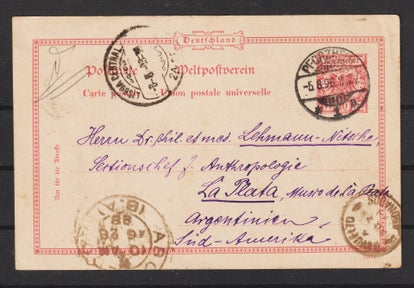 Deutschland
Postkarte Weltpostverein
Carte Union postale universelle
LISBOA CENTRAL
PFORZHEIM
-5.8.98
Herrn Dr. phil. et med. Lehmann-Nitsche,
Sectionschef f. Anthropologie
La Plata, Museo de La Plata
Argentinien
Süd-Amerika
Nur für die Adresse
10 AM
AG 26
98